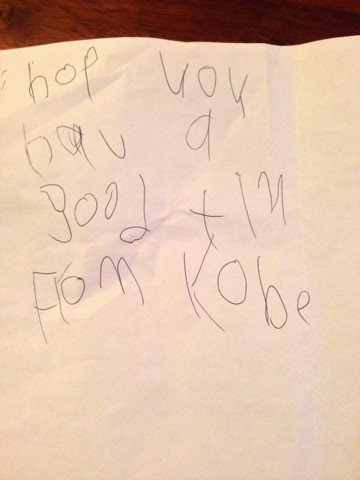 hop you
hav a
good tim
From Kobe